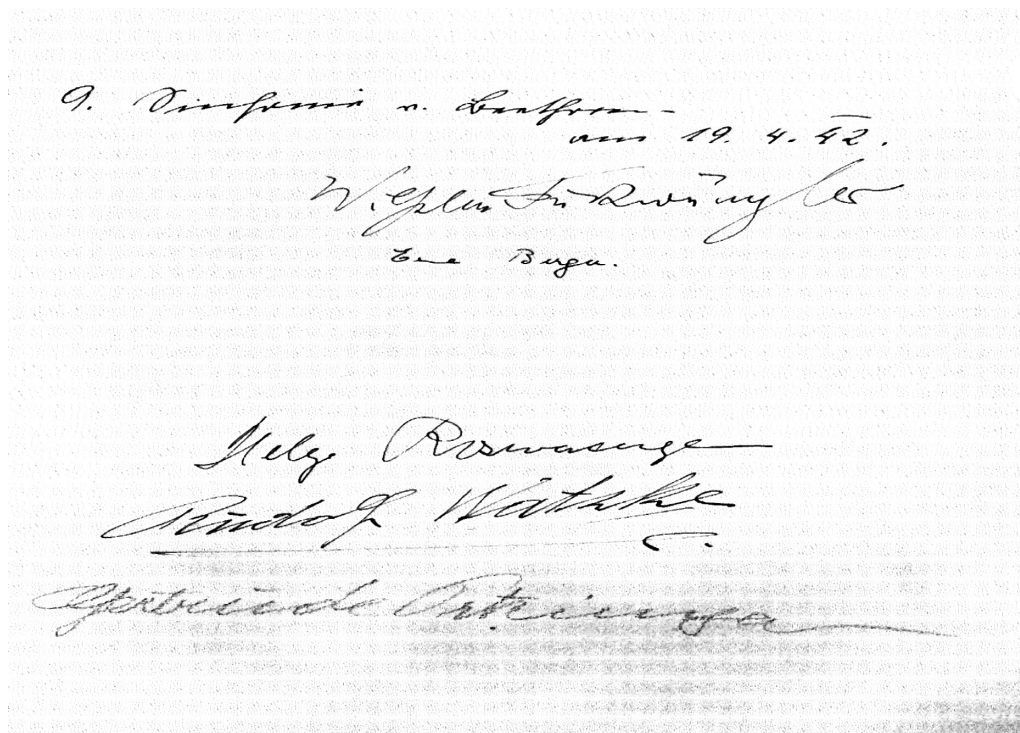 9. Sinfonie v. Beethoven
am 19. 4. 42.
Wilhelm Furtwängler
Erna Berger.
Helge Roswaenge
Rudolf Watzke
Gertrude Pitzinger